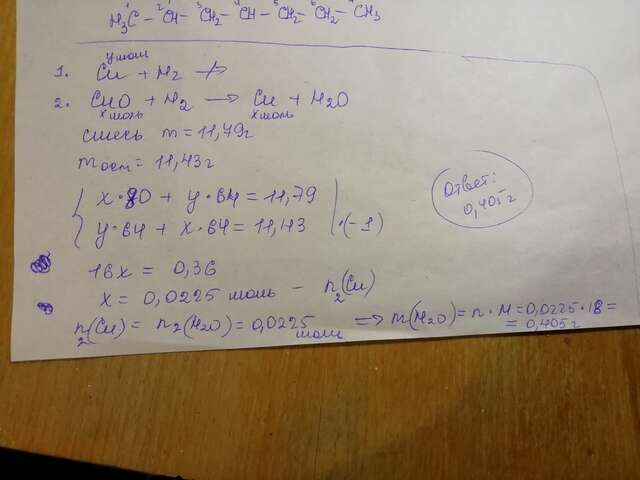 H₃C¹ – ²CH – ³CH₂ – ⁴CH – ⁵CH₂ – ⁶CH₂ – ⁷CH₃
y моль
1. Cu + H₂ ⇸
2. CuO + H₂ → Cu + H₂O
x моль x моль
смесь m = 11,79г
mост = 11,43г
x·80 + y·64 = 11,79
y·64 + x·64 = 11,43 | ·(-1)
Ответ:
0,405г
16x = 0,36
x = 0,0225 моль – n₂(Cu)
n₂(Cu) = n₂(H₂O) = 0,0225 моль => m(H₂O) = n · M = 0,0225·18 =
= 0,405г